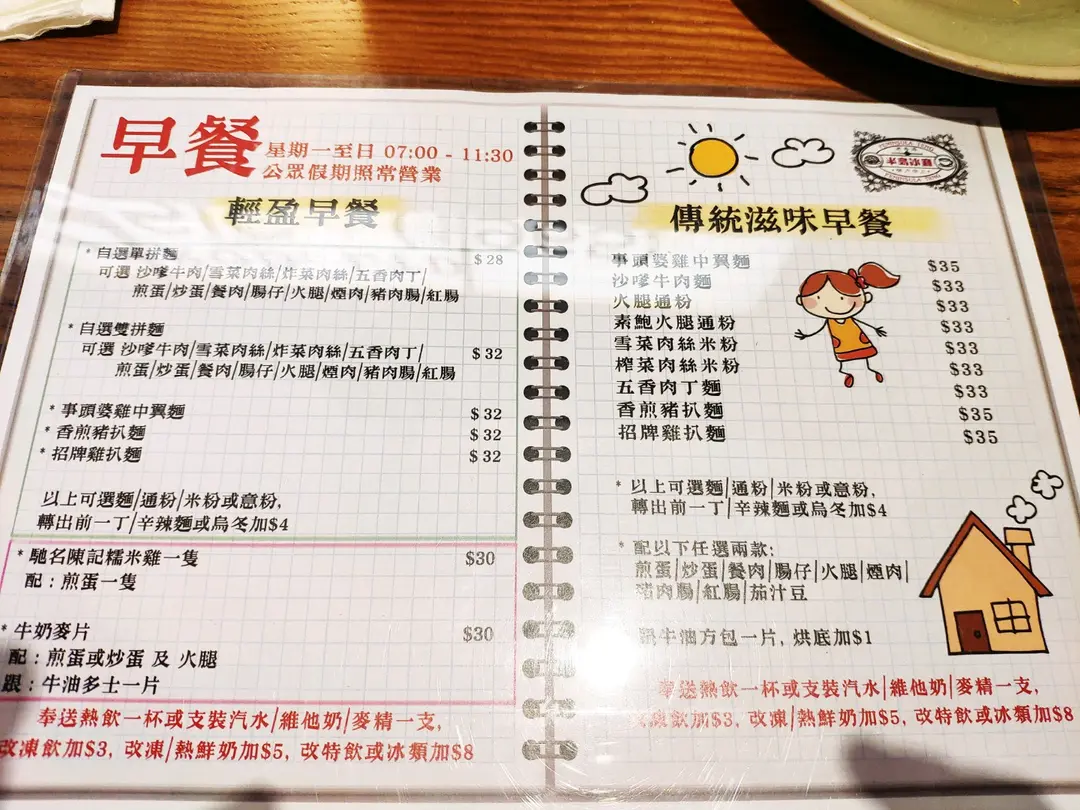 早餐
星期一至日 07:00 - 11:30
公眾假期照常營業
輕盈早餐
* 自選單拼麵 $28
可選 沙嗲牛肉/雪菜肉絲/炸菜肉絲/五香肉丁/
煎蛋/炒蛋/餐肉/腸仔/火腿/煙肉/豬肉腸/紅腸
* 自選雙拼麵
可選 沙嗲牛肉/雪菜肉絲/炸菜肉絲/五香肉丁/ $32
煎蛋/炒蛋/餐肉/腸仔/火腿/煙肉/豬肉腸/紅腸
* 事頭婆雞中翼麵 $32
* 香煎豬扒麵 $32
* 招牌雞扒麵 $32
以上可選麵/通粉/米粉或意粉,
轉出前一丁/辛辣麵或烏冬加$4
* 馳名陳記糯米雞一隻 $30
配:煎蛋一隻
* 牛奶麥片 $30
配:煎蛋或炒蛋 及 火腿
跟:牛油多士一片
奉送熱飲一杯或支裝汽水/維他奶/麥精一支,
改凍飲加$3, 改凍/熱鮮奶加$5, 改特飲或冰類加$8
傳統滋味早餐
事頭婆雞中翼麵 $35
沙嗲牛肉麵 $33
火腿通粉 $33
素鮑火腿通粉 $33
雪菜肉絲米粉 $33
榨菜肉絲米粉 $33
五香肉丁麵 $33
香煎豬扒麵 $35
招牌雞扒麵 $35
* 以上可選麵/通粉/米粉或意粉,
轉出前一丁/辛辣麵或烏冬加$4
* 配以下任選兩款:
煎蛋/炒蛋/餐肉/腸仔/火腿/煙肉/
豬肉腸/紅腸/茄汁豆
跟牛油方包一片, 烘底加$1
奉送熱飲一杯或支裝汽水/維他奶/麥精一支,
改凍飲加$3, 改凍/熱鮮奶加$5, 改特飲或冰類加$8